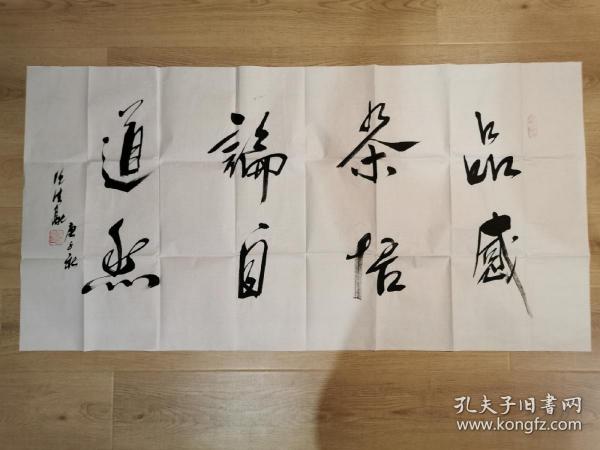 品茶論道
感悟自然
庚子秋
孔夫子旧书网
www.kongfz.com